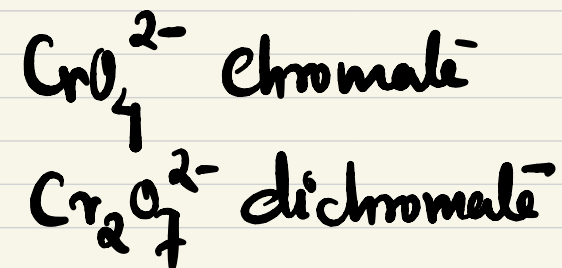 CrO₄²⁻ Chromate
Cr₂O₇²⁻ dichromate